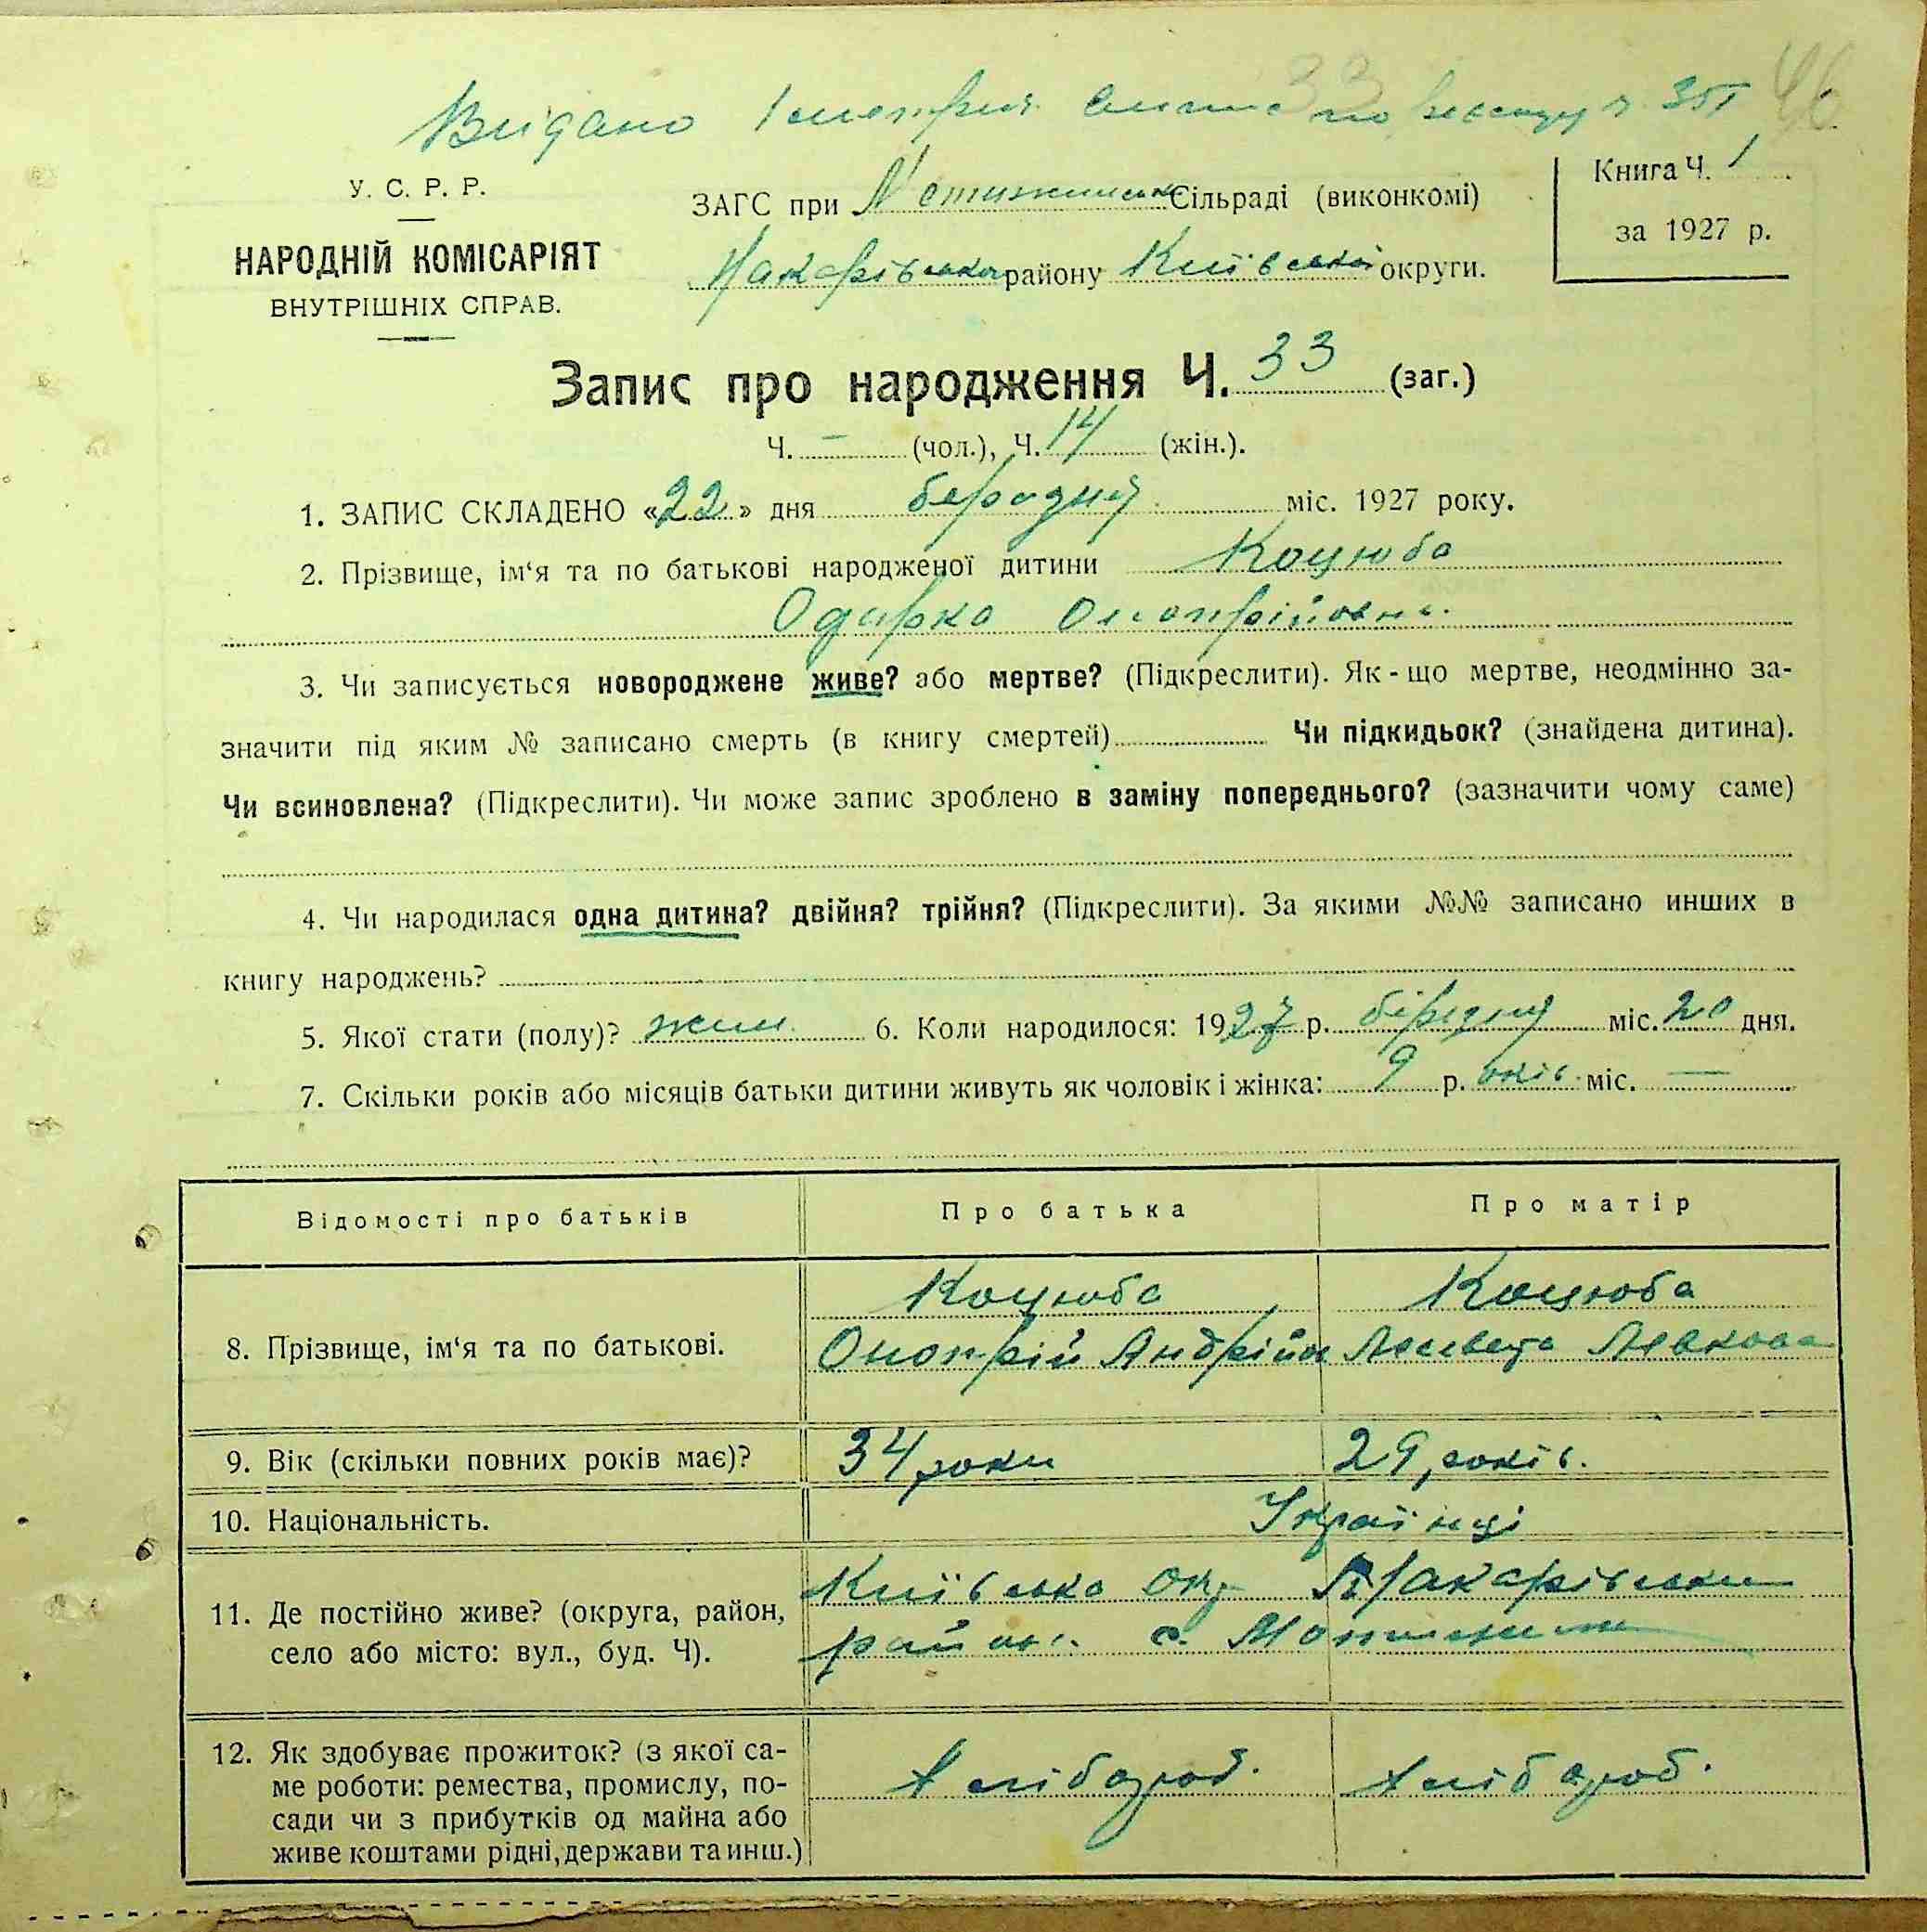 Видано 1 метрич. по 35
33 46
У. С. Р. Р.
НАРОДНІЙ КОМІСАРІЯТ
ВНУТРІШНІХ СПРАВ.
ЗАГС при Сільраді (виконкомі)
Макарівського району Київської округи.
Книга Ч. 1
за 1927 р.
Запис про народження Ч. 33 (заг.)
Ч. — (чол.), Ч. 14 (жін.).
1. ЗАПИС СКЛАДЕНО «22» дня березня міс. 1927 року.
2. Прізвище, ім‘я та по батькові народженої дитини Коцюба
Одарка Онопрійовна.
3. Чи записується новороджене живе? або мертве? (Підкреслити). Як-що мертве, неодмінно за-
значити під яким № записано смерть (в книгу смертей) Чи підкидьок? (знайдена дитина).
Чи всиновлена? (Підкреслити). Чи може запис зроблено в заміну попереднього? (зазначити чому саме)
4. Чи народилася одна дитина? двійня? трійня? (Підкреслити). За якими №№ записано инших в
книгу народжень?
5. Якої стати (полу)? жін. 6. Коли народилося: 1927 р. березня міс. 20 дня.
7. Скільки років або місяців батьки дитини живуть як чоловік і жінка: 9 р. міс. —
Відомості про батьків Про батька Про матір
8. Прізвище, ім‘я та по батькові. Коцюба Коцюба
Онопрій Андрійов Лисавета Левкова
9. Вік (скільки повних років має)? 34 роки 29 років.
10. Національність. Українці
11. Де постійно живе? (округа, район,
село або місто: вул., буд. Ч).
Київська окр. Макарівськи
район. с. Мотижин
12. Як здобуває прожиток? (з якої са-
ме роботи: ремества, промислу, по-
сади чи з прибутків од майна або
живе коштами рідні, держави та инш.)
Хлібороб. Хлібороб.